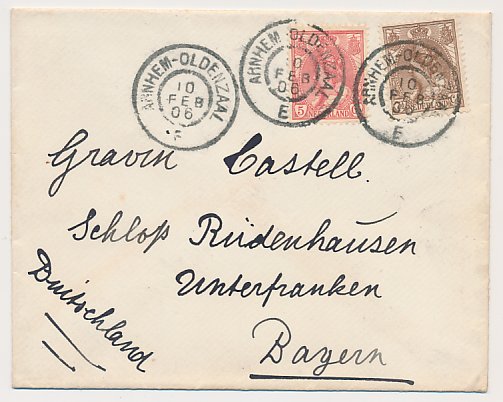 ARNHEM-OLDENZAAL
10
FEB
06
ARNHEM-OLDENZAAL
10
FEB
06
E
ARNHEM-OLDENZAAL
10
E
5
NEDERLAND
Gravin Castell.
Schloß Rüdenhausen
Unterfranken
Bayern
Duitschland